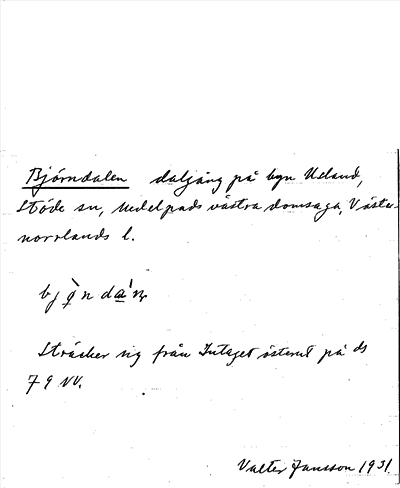 Björndalen dalgång på byn Usland,
Stöde sn, Medelpads västra domsaga, Väster-
norrlands l.
Sträcker sig från Intaget österut på ds
79 VV.
Valter Jansson 1931.